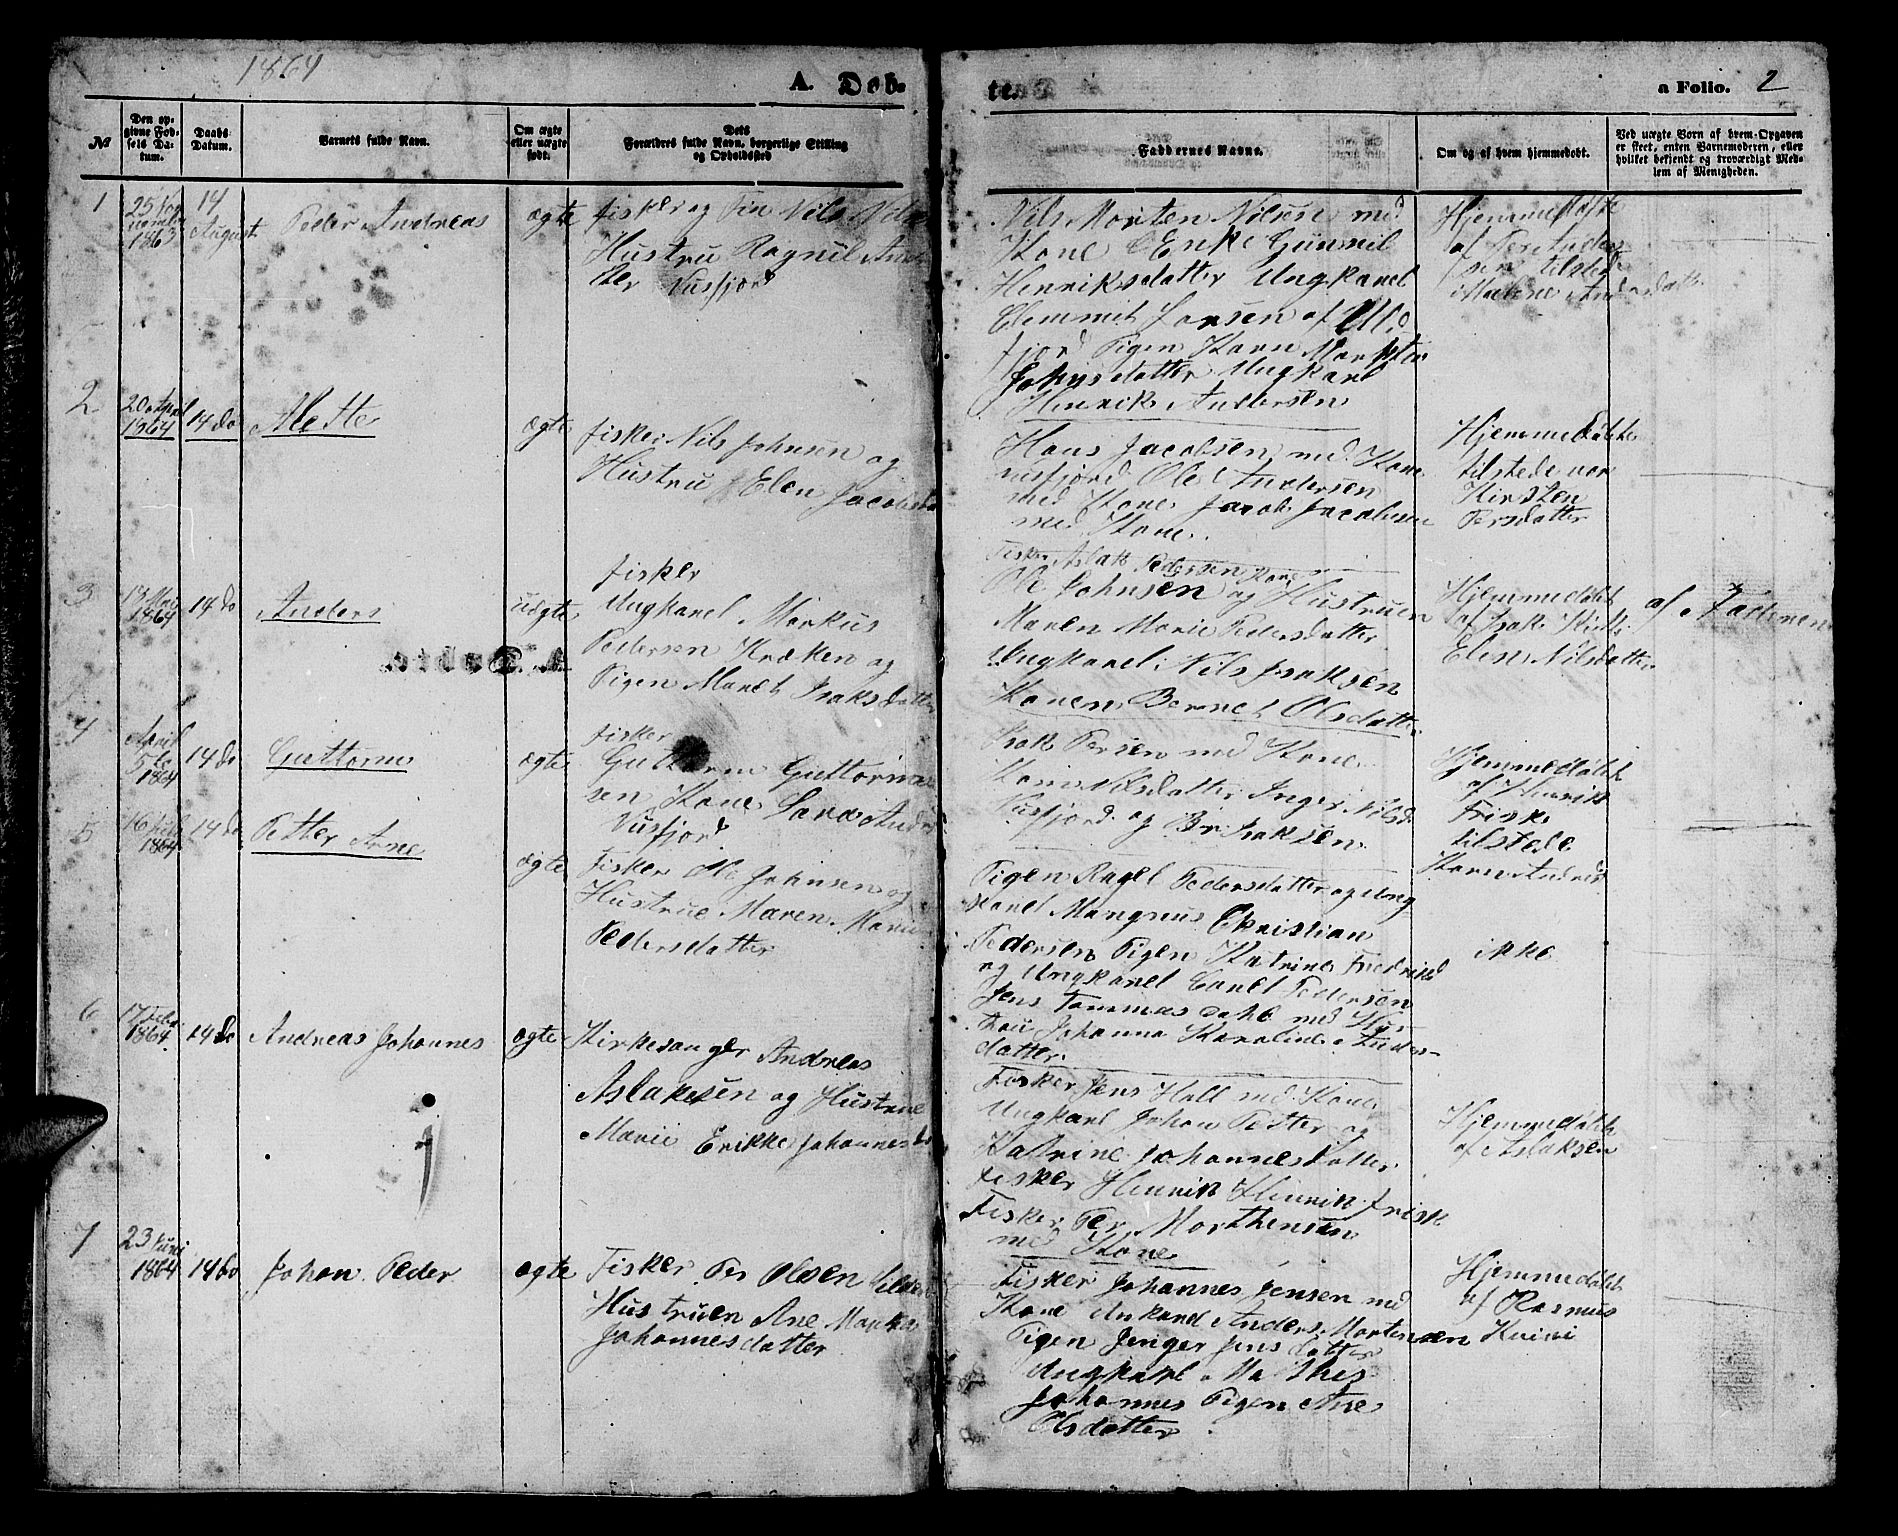 1864
A. Døb-
te.
a Folio. 2
№
Den op-
givne Fød-
sels Da-
tum.
Daabs
Datum.
Barnets fulde Navn.
Om ægte
eller uægte
født.
Dets
Forældres fulde Navn, borgerlige Stilling
og Opholdssted
Faddernes Navne.
Om og af hvem hjemmedøbt.
Ved uægte Børn af hvem Opgaven
er skeet, enten Barnemoderen, eller
hvilket bekjendt og troværdigt Med-
lem af Menigheden.
1
25 No
vember
1863
14
August
Peder Andreas
ægte
fisker og Nils Nils
Hustru Ragnil And
Nusfjord
Nils Morten Nilsen med
Kone Enke Gunnil
Henriksdatter Ungkarel
Clemmit Larsen af Ulls
fjord Pigen Karn Margrete
Johnsdatter Ungkarl
Henrik Andersen
Hjemmedøbte
af Per Ander
sen tilsted
Malene Andersdatt
2
20 April
1864
14 do
Mette
ægte
fisker Nils Johnsen og
Hustru Elen Jacobsda
Hans Jacobsen med Kone
nusfjord Ole Andersen
med Kone Jacob Jacobsen
med Kone.
Fisker Aslak Pedersen Kone
Hjemmedøbt
tilstede var
Kirsten
Persdatter
3
13 Mai
1864
14 do
Anders
uægte
fisker
Ungkarel Markus
Pedersen Kræken og
Pigen Maret Isaksdatter
Ole Johnsen og Hustruen
Maren Marie Pedersdatter
Ungkarel Nils Isaksen
Konen Bernet Olsdatter
Hjemmedøbt
af Isak
Elen Nilsdatter
af Faderen
4
April
5te
1864
14 do
Guttorm
ægte
fisker
Guttorm Guttorm
sen Kone Sara Anders
Nusfjord
Isak Persen med Kone
Karn Nilsdatter Inger Nilsd
Nusfjord og Br Isaksen
Hjemmedøbt
af Henrik
Frisk
tilstede
Karn Andrisd
5
16 Juli
1864
14 do
Petter Arne
ægte
Fisker Ole Johnsen og
Hustrue Maren Marie
Pedersdatter
Pigen Ragel Pedersdatter og Ung
karel Mangnus Christian
Pedersen Pigen Katrine Fredriks
og Ungkarel Carel Pedersen
Jens Tommas Dahl med Hus
true Johanna Karoline Anders-
datter
ikke
6
17 Febr
1864
14 do
Andreas Johannes
ægte
Kirkesanger Andreas
Aslaksen og Hustrue
Marie Erikke Johannesda
Fisker Jens Hall med Kone
Ungkarl Johan Petter og
Katrine Johannesdatter
Fisker Henrik Henrik Frisk
Fisker Per Morthensen
med Kone
Hjemmedøbt
af Aslaksen
7
23 Juni
1864
14 do
Johan Peder
ægte
Fisker Per Olsen
Hustruen Ane Marka
Johannesdatter
Fisker Johannes Jensen med
Kone Unkarel Anders Mortensen
Pigen Jenger Jens datter
Ungkarl Mathis
Johannes Pigen Ane
Olsdatter.
Hjemmedøbt
af Rasmus
Kuini